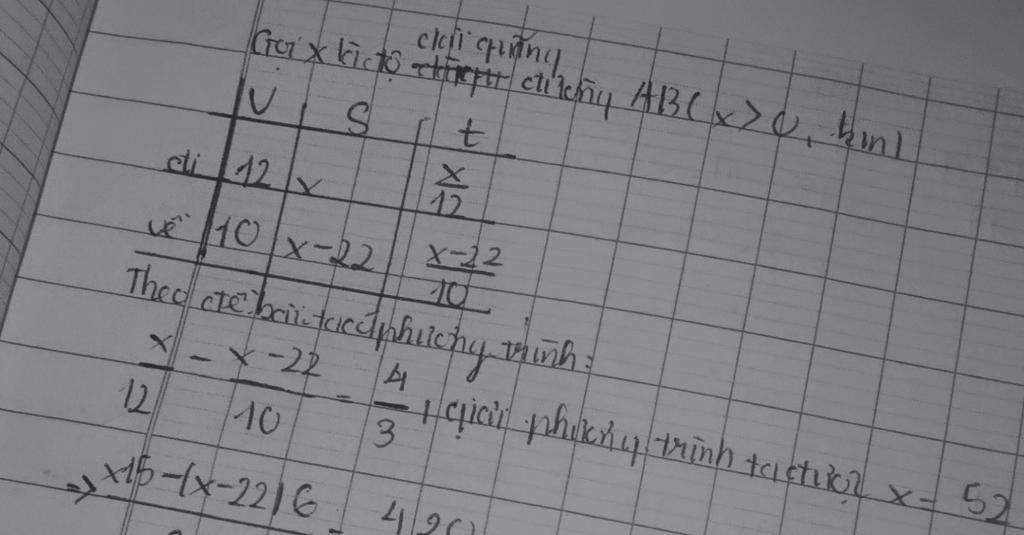 Gọi x là độ dài quãng đường AB (x > 0, km)
V S t
đi 12 x x/12
về 10 x-22 x-22/10
Theo đề bài ta có phương trình:
x/12 - x-22/10 = 4/3, giải phương trình ta được x = 52
=> x15-(x-22)6 = 4.20